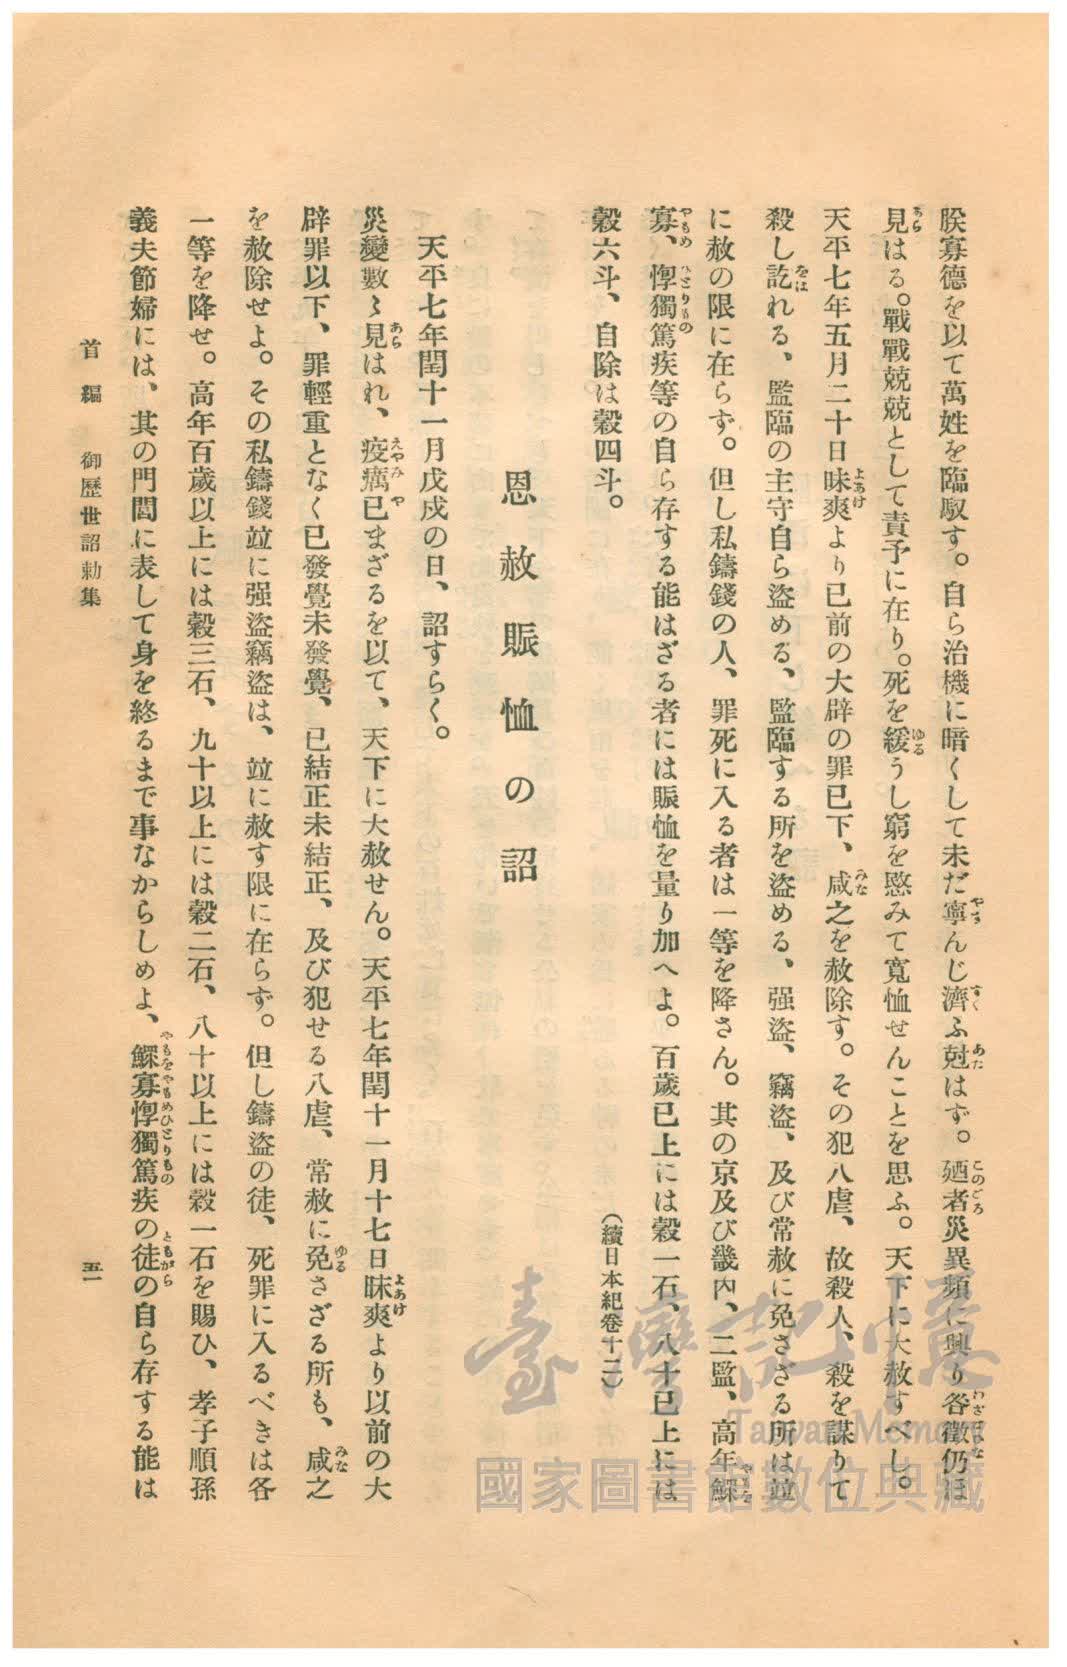 朕寡德を以て萬姓を臨馭す。自ら治機に暗くして未だ寧んじ濟ふ尅はず。廼者災異頻に興り咎徵仍ほ
見はる。戰戰兢兢として責予に在り。死を緩うし窮を愍みて寬恤せんことを思ふ。天下に大赦すべし。
天平七年五月二十日昧爽より已前の大辟の罪已下、咸之を赦除す。その犯八虐、故殺人、殺を謀りて
殺し訖れる、監臨の主守自ら盜める、監臨する所を盜める、强盜、竊盜、及び常赦に免さざる所は竝
に赦の限に在らず。但し私鑄錢の人、罪死に入る者は一等を降さん。其の京及び畿內、二監、高年鰥
寡、惸獨篤疾等の自ら存する能はざる者には賑恤を量り加へよ。百歲已上には穀一石、八十已上には
穀六斗、自除は穀四斗。
(續日本紀卷十二)
恩赦賑恤の詔
天平七年閏十一月戊戌の日、詔すらく。
災變數〻見はれ、疫癘已まざるを以て、天下に大赦せん。天平七年閏十一月十七日昧爽より以前の大
辟罪以下、罪輕重となく已發覺未發覺、已結正未結正、及び犯せる八虐、常赦に免さざる所も、咸之
を赦除せよ。その私鑄錢竝に强盜竊盜は、竝に赦す限に在らず。但し鑄盜の徒、死罪に入るべきは各
一等を降せ。高年百歲以上には穀三石、九十以上には穀二石、八十以上には穀一石を賜ひ、孝子順孫
義夫節婦には、其の門閭に表して身を終るまで事なからしめよ、鰥寡惸獨篤疾の徒の自ら存する能は
首編 御歷世詔勅集
五一
臺灣記憶
Taiwan Memory
國家圖書館數位典藏